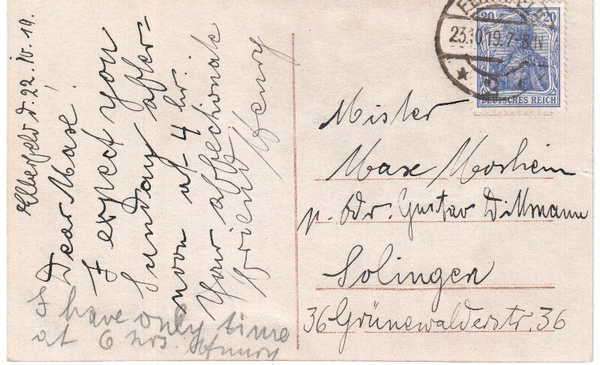 Elberfeld d. 22. IV. 19.
Dear Max.
I expect you
Sunday after-
noon at 4 hr.
Your affectionate
friend Henry
I have only time
at 6 hrs. Henry
20 20
23.10.19.7-8.N
DEUTSCHES REICH
Mister
Max Morheim
p. Adr. Gustav Dillmann
Solingen
36 Grünewalderstr. 36